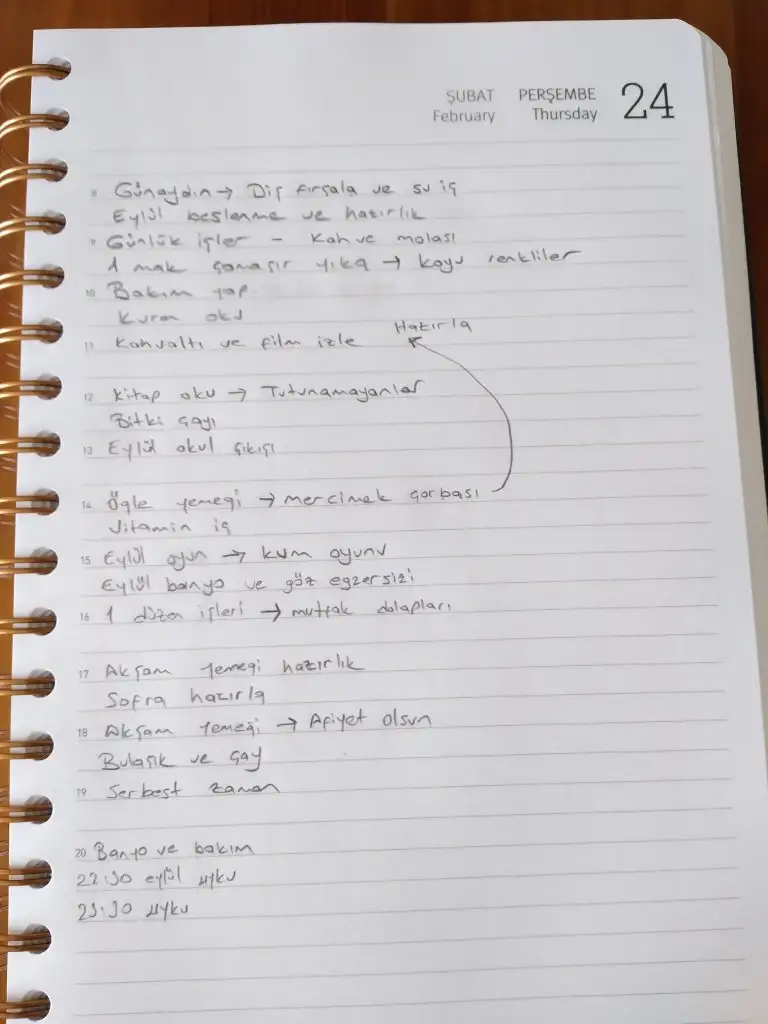 ŞUBAT PERŞEMBE 24
February Thursday
8 Günaydın → Diş fırçala ve su iç
Eylül beslenme ve hazırlık
9 Günlük işler - Kahve molası
1 mak çamaşır yıka → koyu renkliler
10 Bakım yap
Kuran oku
Hazırla
11 Kahvaltı ve film izle
12 Kitap oku → Tutunamayanlar
Bitki çayı
13 Eylül okul çıkışı
14 Öğle yemeği → mercimek çorbası
Vitamin iç
15 Eylül oyun → kum oyunu
Eylül banyo ve göz egzersizi
16 1 düzen işleri → mutfak dolapları
17 Akşam yemeği hazırlık
Sofra hazırla
18 Akşam yemeği → Afiyet olsun
Bulaşık ve çay
19 Serbest zaman
20 Banyo ve bakım
22:30 eylül uyku
23:30 uyku